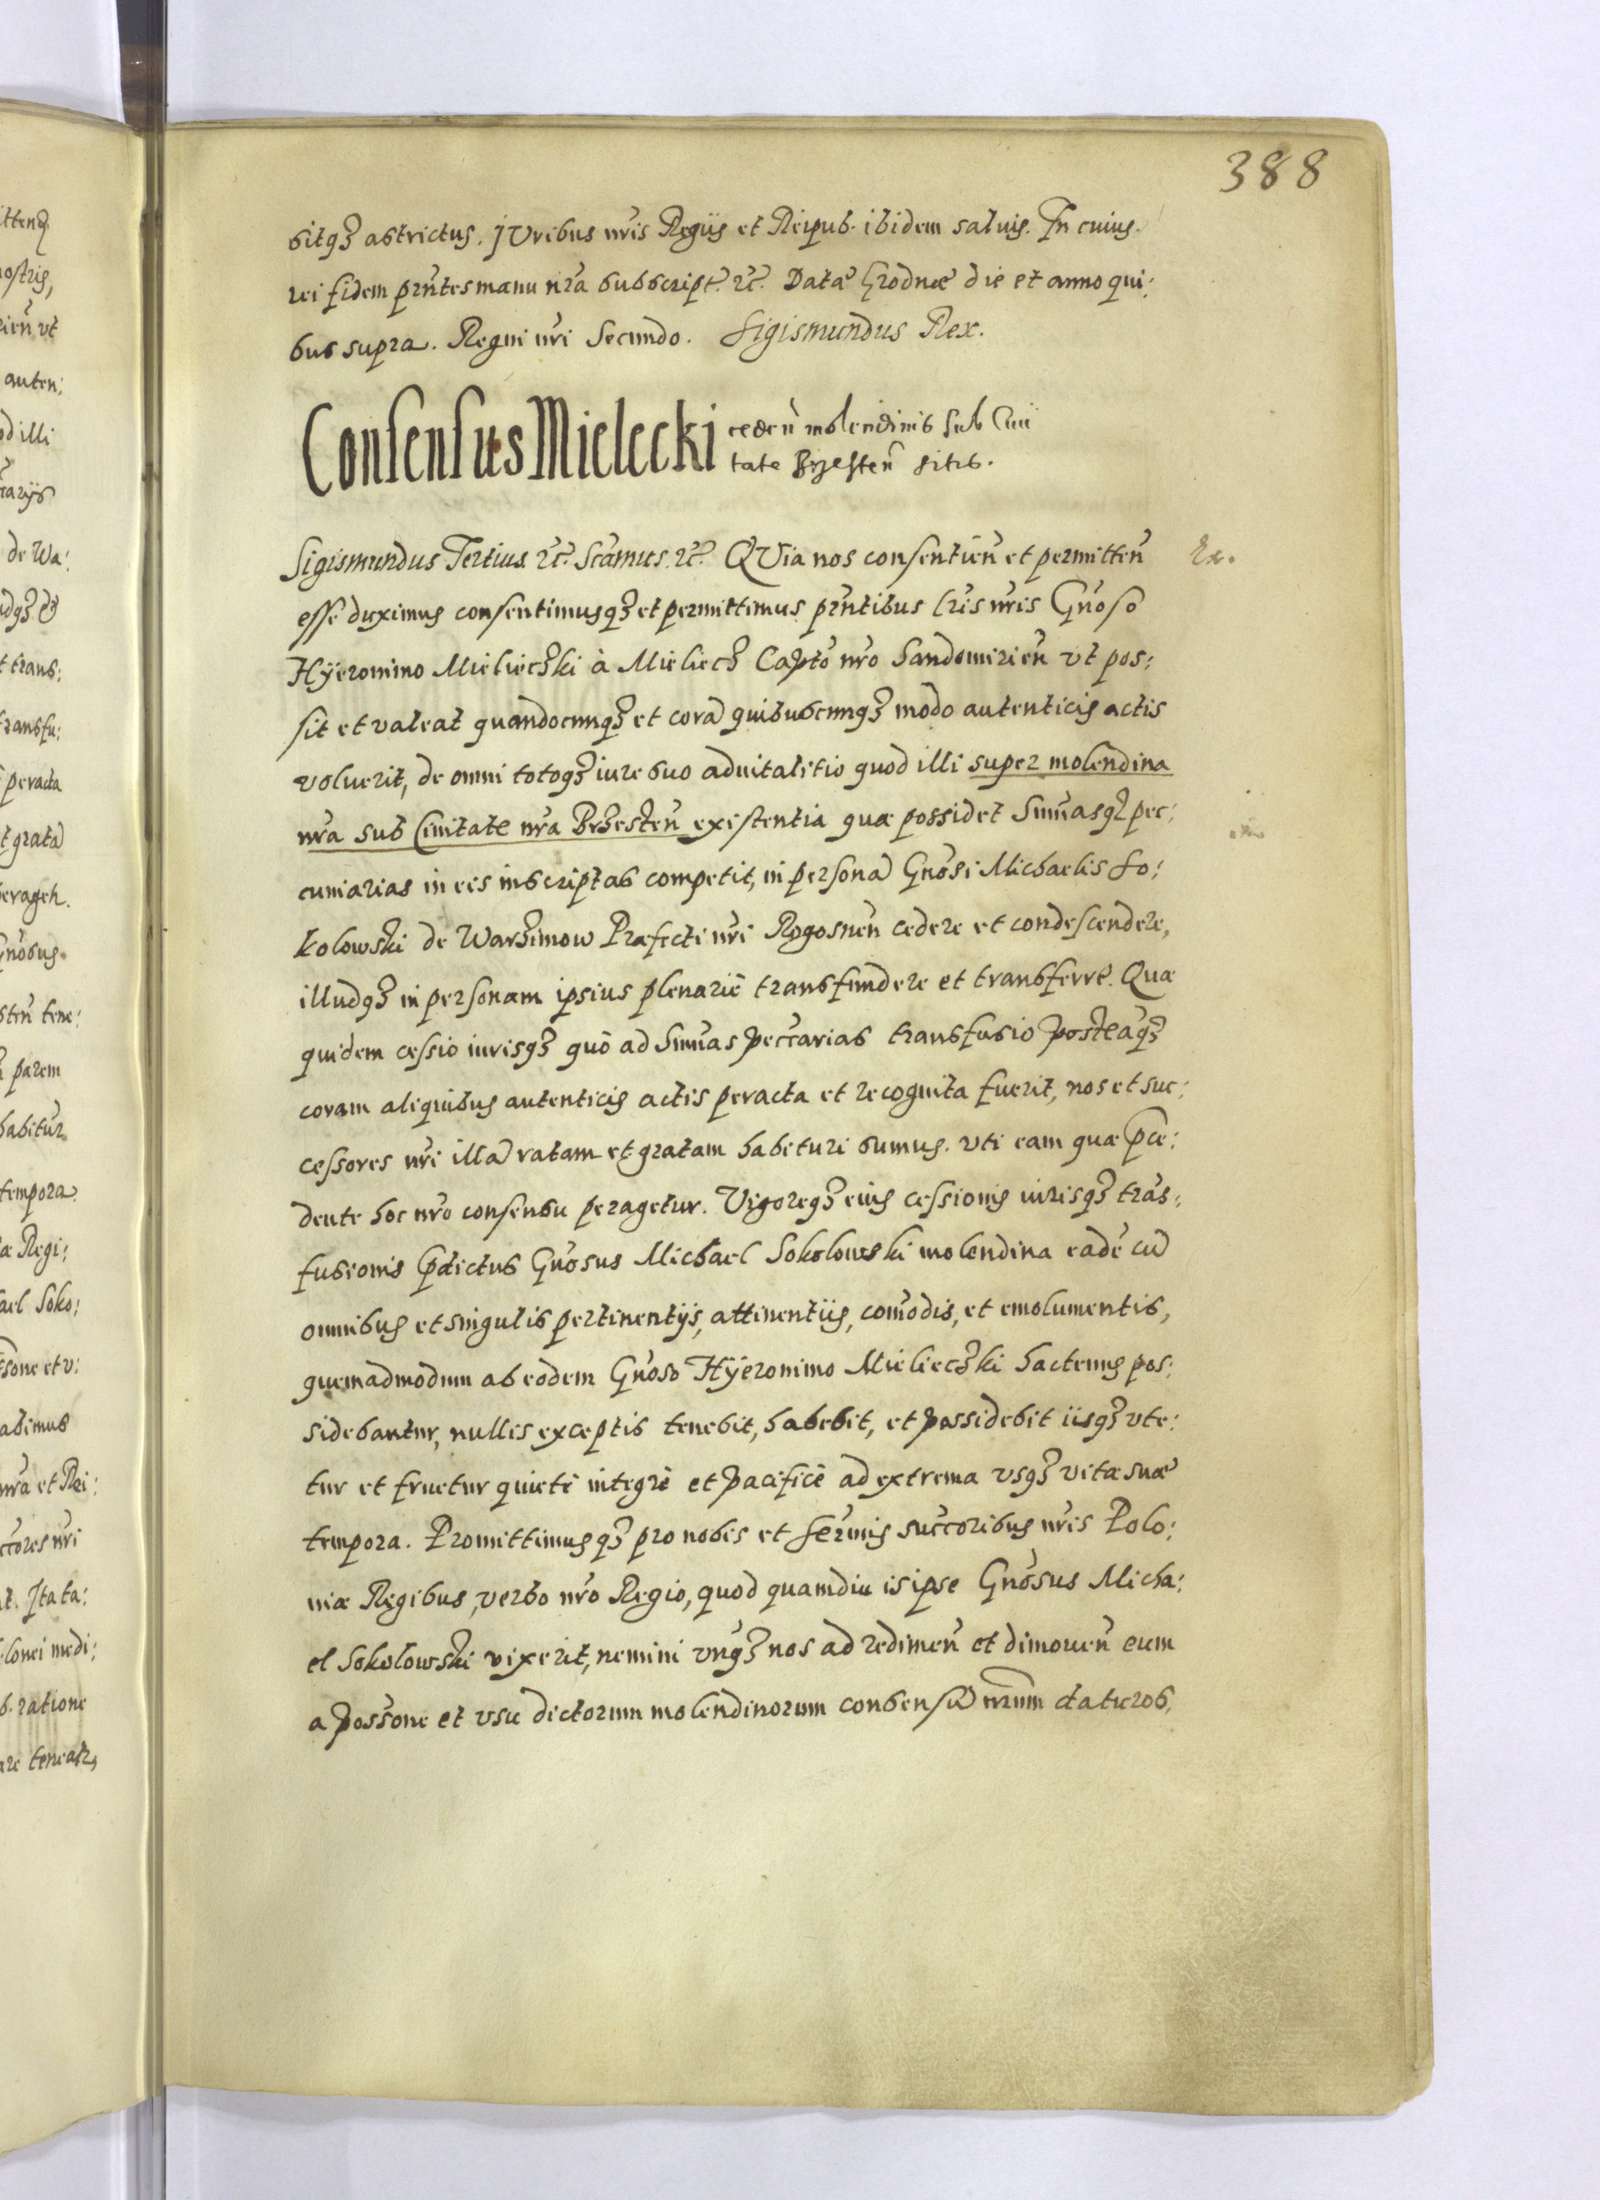 388
sitq₃ astrictus. JUribus nr̃is Regijs et Reipub. ibidem saluis. In cuius
rei fidem pr̃ntes manu nr̃a subscript. etc. Datæ Grodnæ die et anno qui:
bus supra. Regni nr̃i Secundo. Sigismundus Rex.
Consensus Mielecki ceden̄ molendinis sub Ciui
tate Brzesten̄ sitis.
Sigismundus Tertius etc. Sc̃amus etc. QVia nos consentien̄ et permitten̄
esse duximus consentimusq₃ et permittimus pr̃ntibus lr̃is nr̃is Gñoso
Hÿeronimo Mieliec₃ki à Mieliec₃ Capto nr̃o Sandomirien̄ vt pos:
sit et valeat quandocunq₃ et corā quibuscunq₃ modo autenticis actis
voluerit, de omni totoq₃ iure suo aduitalitio quod illi super molendina
nr̃a sub Ciuitate nr̃a Br₃esten̄ existentia quæ possidet Sum̃asq₃ pec:
cuniarias in eis inscriptas competit, in personā Gñosi Michaelis So:
kolowski de War₃imow Præfecti nr̃i Rogosnen̄ cedere et condescendere,
illudq₃ in personam ipsius plenariè transfundere et transferre. Quæ
quidem cessio iurisq₃ quò ad Sum̃as pec̃carias transfusio posteaq₃
coram aliquibus autenticis actis peracta et recognita fuerit, nos et suc:
cessores nr̃i illā ratam et gratam habituri sumus. vti eam quæ p̃ce:
dente hoc nr̃o consensu peragetur. Vigoreq₃ eius cessionis iurisq₃ trãs:
fusionis p̃dictus Gñosus Michael Sokolowski molendina eadē cū
omnibus et singulis pertinentijs, attinentijs, com̃odis, et emolumentis,
quemadmodum ab eodem Gñoso Hÿeronimo Mieliec₃ki hactenus pos:
sidebantur, nullis exceptis tenebit, habebit, et possidebit iisq₃ vte:
tur et fruetur quietè integrè et pacificè ad extrema vsq₃ vitæ suæ
tempora. Promittimusq₃ pro nobis et Ser̃mis suc̃coribus nr̃is Polo:
niæ Regibus, verbo nr̃o Regio, quod quamdiu is ipse Gñosus Micha:
el Sokolowski vixerit, nemini vnq₃ nos ad redimen̄ et dimouen̄ eum
a poss̃one et vsu dictorum molendinorum consensū nr̃um daturos,